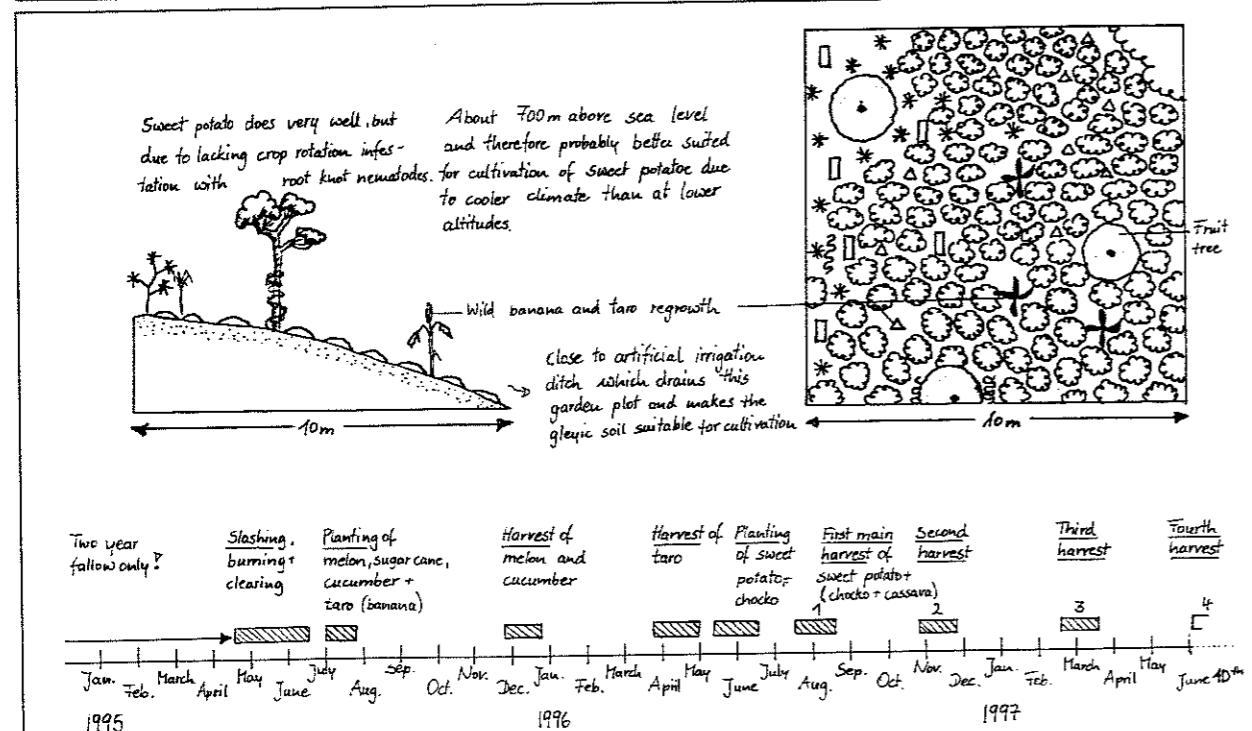 Sweet potato does very well, but
due to lacking crop rotation infes-
tation with root knot nematodes.
About 700 m above sea level
and therefore probably better suited
for cultivation of sweet potatoe due
to cooler climate than at lower
altitudes.
Fruit
tree
Wild banana and taro regrowth
Close to artificial irrigation
ditch which drains this
garden plot and makes the
gleyic soil suitable for cultivation
10m
10m
Two year
fallow only!
Slashing,
burning +
clearing
Planting of
melon, sugar cane,
cucumber +
taro (banana)
Harvest of
melon and
cucumber
Harvest of
taro
Planting
of sweet
potato +
chocko
First main
harvest of
sweet potato +
(chocko + cassava)
Second
harvest
Third
harvest
Fourth
harvest
1 2 3 4
Jan. Feb. March April May June July Aug. Sep. Oct. Nov. Dec. Jan. Feb. March April May June July Aug. Sep. Oct. Nov. Dec. Jan. Feb. March April May June 10th
1995 1996 1997